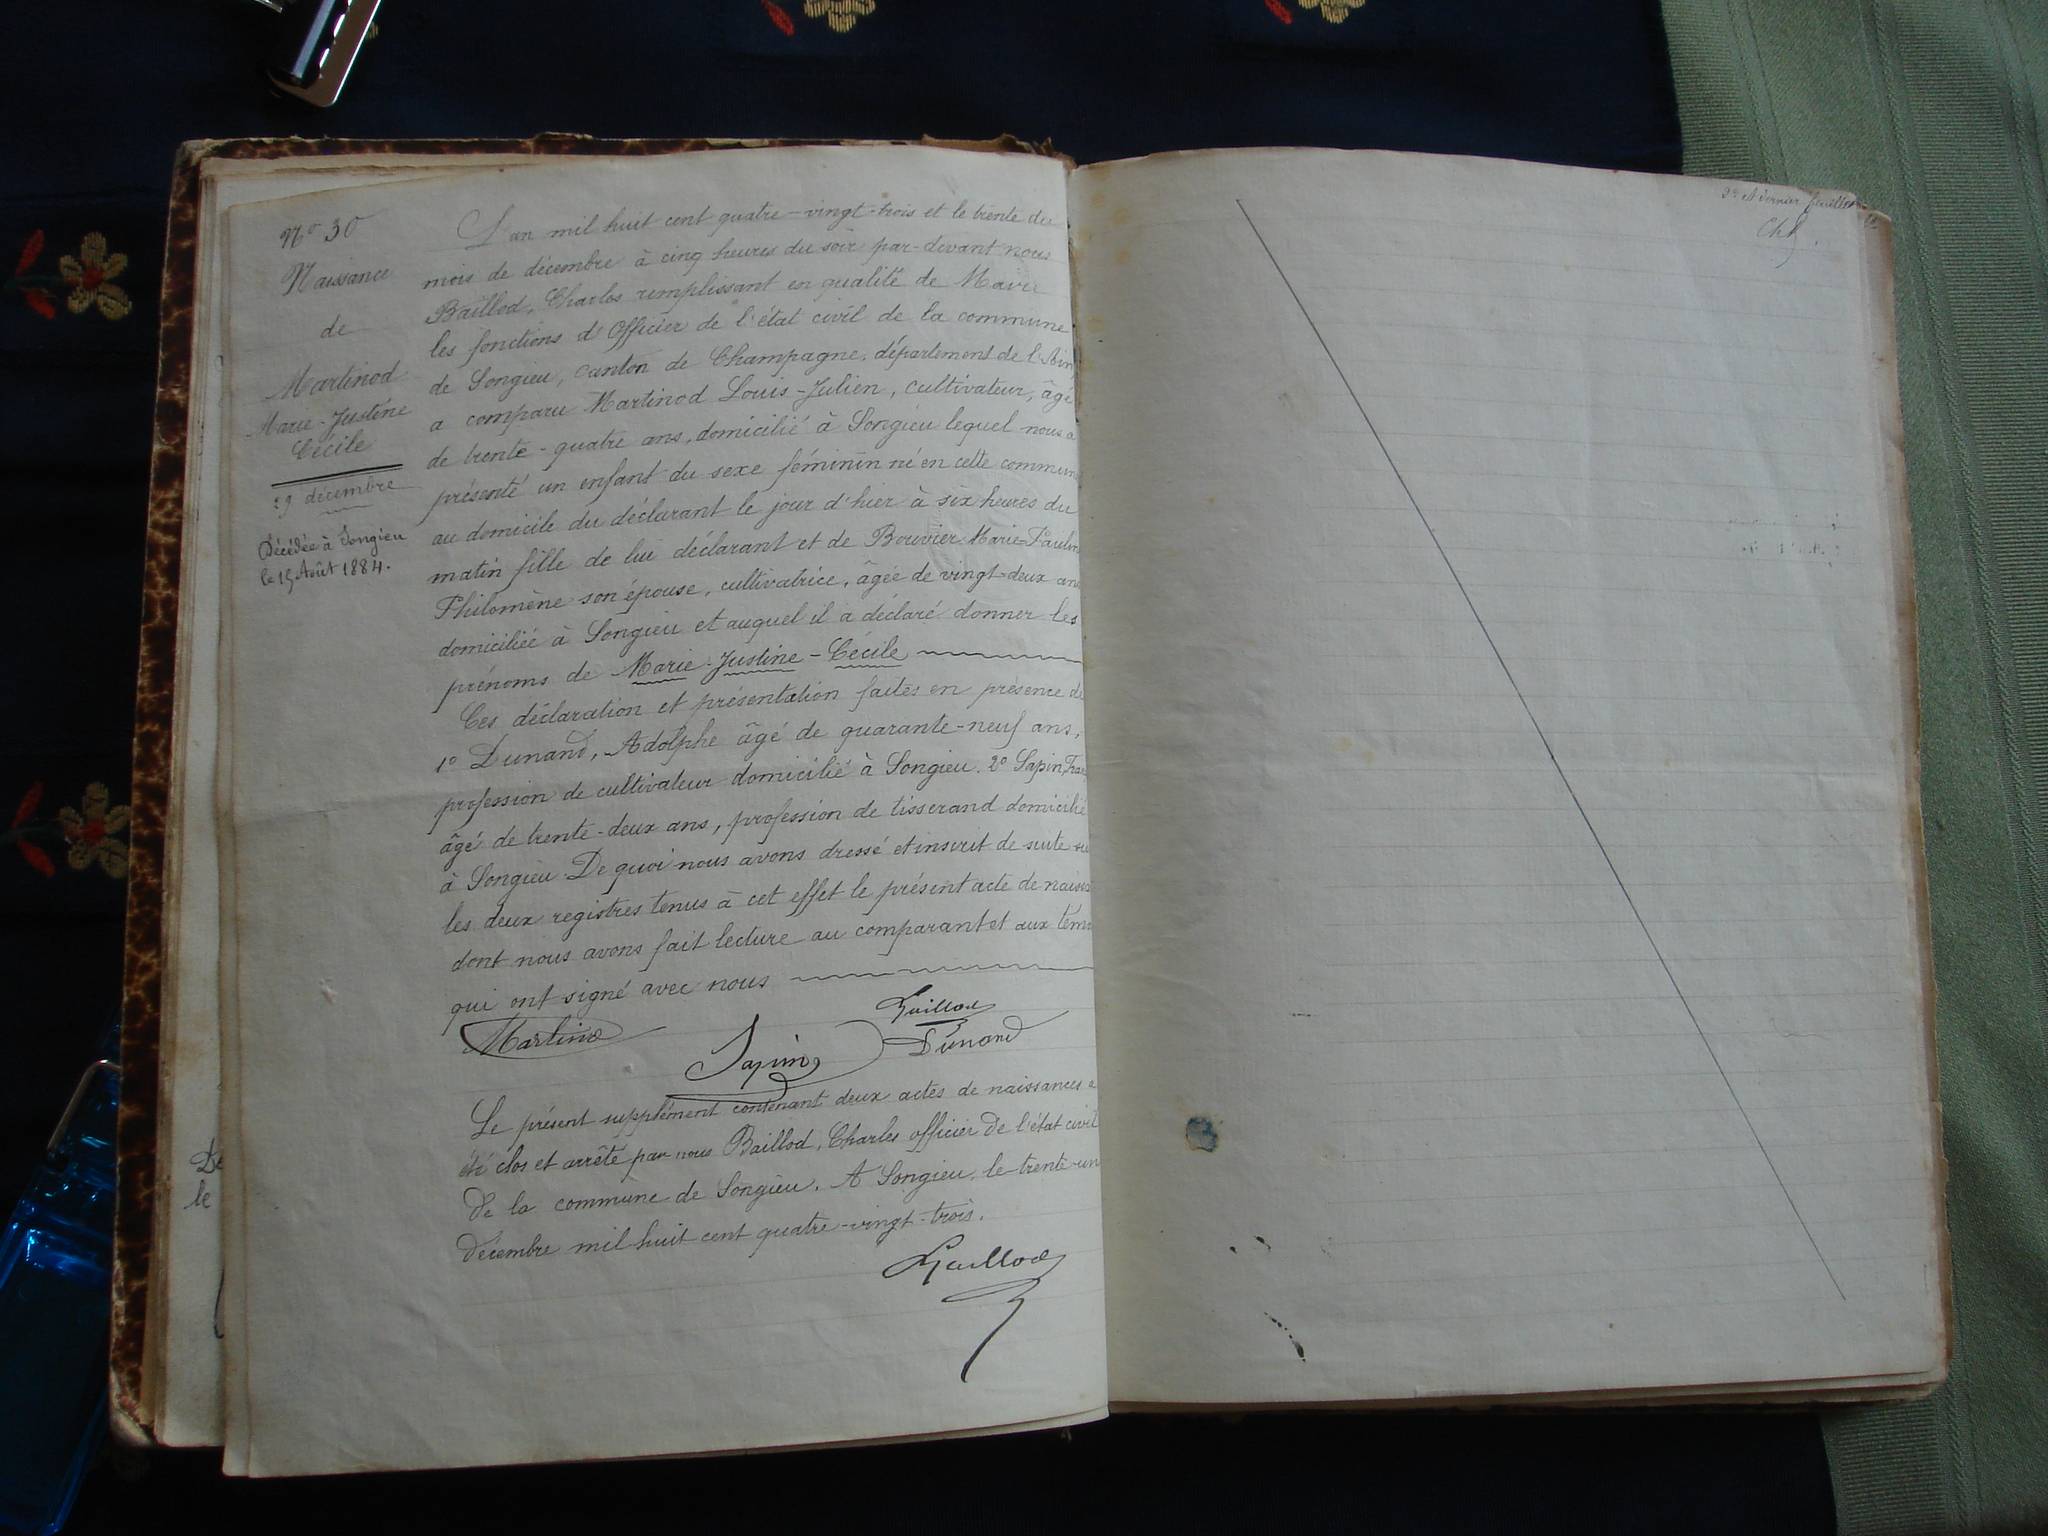 N° 30
Naissance
de
Martinod
Marie-Justine
Cécile
29 décembre
Décédée à Songieu
le 15 Août 1884.
L'an mil huit cent quatre-vingt-trois et le trente du
mois de décembre à cinq heures du soir par-devant nous
Baillod, Charles remplissant en qualité de Maire
les fonctions d'Officier de l'état civil de la commune
de Songieu, canton de Champagne, département de l'Ain,
a comparu Martinod Louis-Julien, cultivateur, âgé
de trente-quatre ans, domicilié à Songieu lequel nous a
présenté un enfant du sexe féminin né en cette commun
au domicile du déclarant le jour d'hier à six heures du
matin fille de lui déclarant et de Bouvier Marie=Paulin
Philomène son épouse, cultivatrice, âgée de vingt=deux ans
domiciliée à Songieu et auquel il a déclaré donner les
prénoms de Marie-Justine-Cécile
Ces déclaration et présentation faites en présence de
1° Dunand, Adolphe âgé de quarante-neuf ans,
profession de cultivateur domicilié à Songieu. 2° Sapin, Fran
âgé de trente-deux ans, profession de tisserand domicilié
à Songieu De quoi nous avons dressé et inscrit de suite su
les deux registres tenus à cet effet le présent acte de naiss
dont nous avons fait lecture au comparant et aux témo
qui ont signé avec nous
Baillod
Martinod
Sapin
Dunand
Le présent supplément contenant deux actes de naissances a
été clos et arrêté par nous Baillod, Charles officier de l'état civil
de la commune de Songieu. A Songieu, le trente-un
décembre mil huit cent quatre-vingt-trois.
Baillod
De
le
2e et dernier feuillet